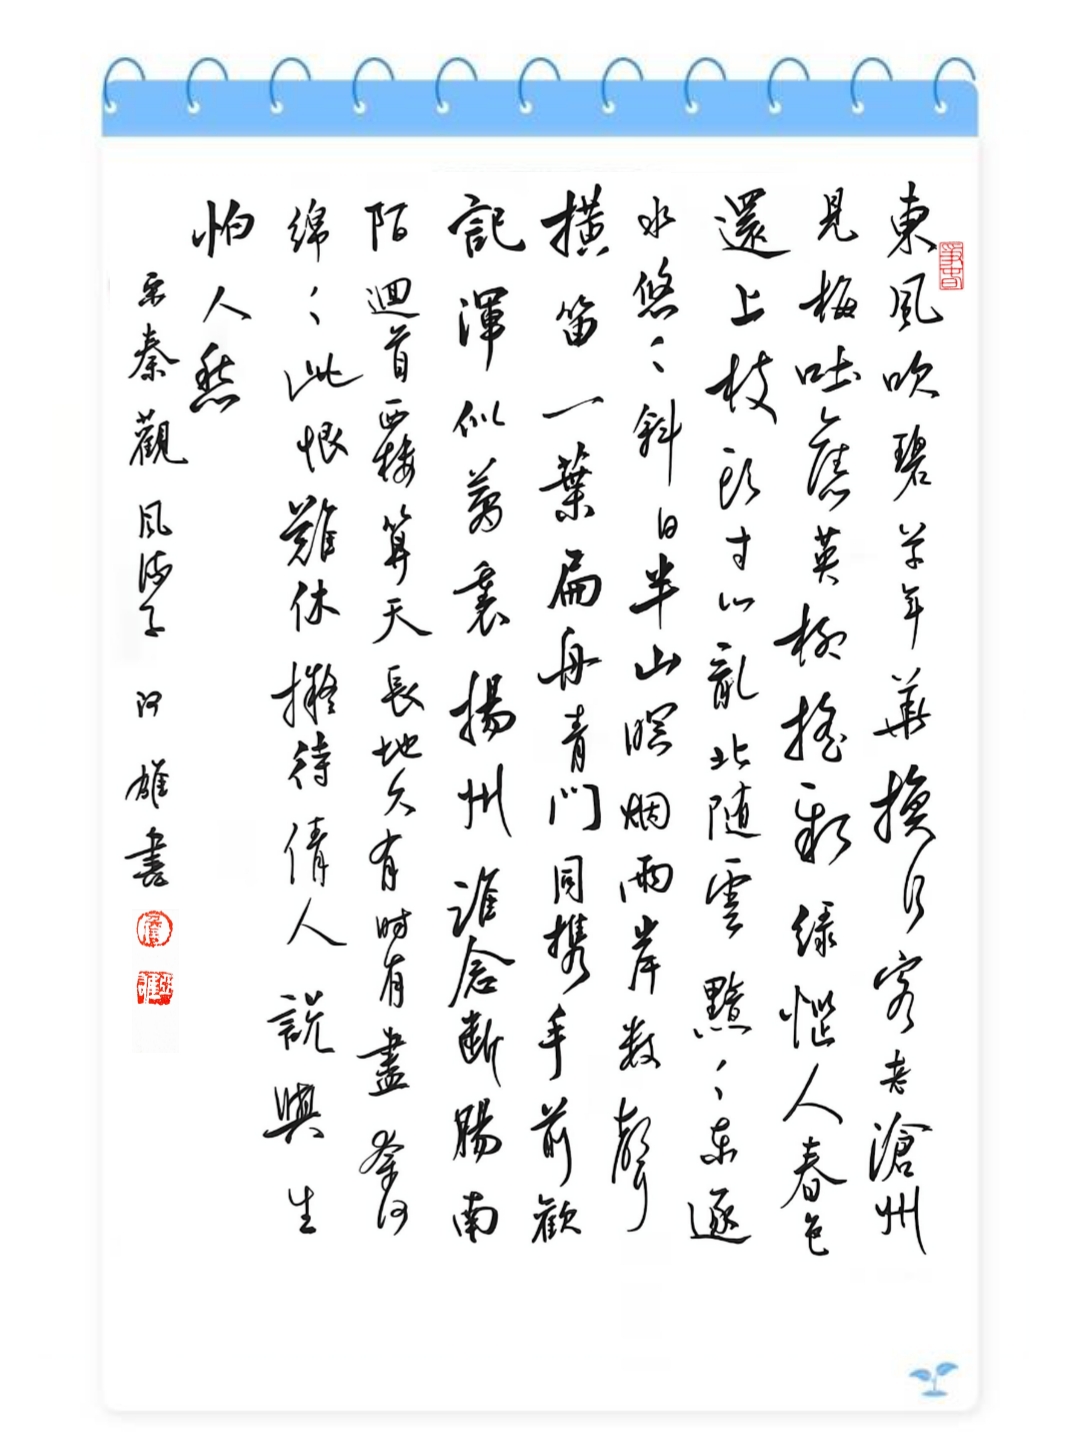 東風吹碧草年華換行客老滄州
見梅吐舊英柳搖新綠惱人春色
還上枝頭寸心亂北随雲黯〻東逐
水悠〻斜日半山暝烟雨岸数聲
横笛一葉扁舟青門同携手前歡
記渾似夢裏揚州誰念断腸南
陌迴首西樓算天長地久有时有盡奈何
綿〻此恨難休擬待倩人説與生
怕人愁
宋秦觀風流子 阿雄書